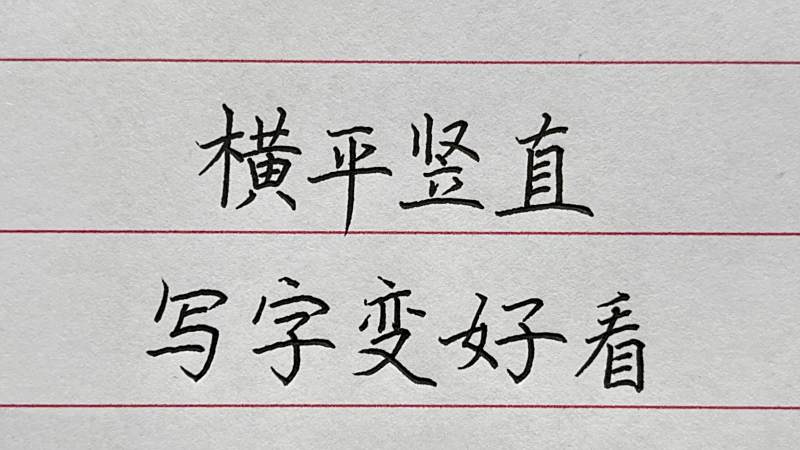 横平竖直
写字变好看